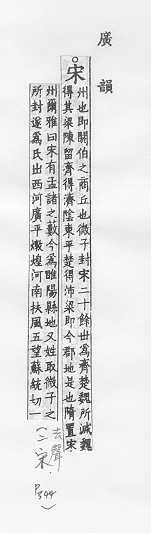 廣韻
宋州也即閼伯之商丘也微子封宋二十餘世爲齊楚魏所滅魏
得其梁陳留齊得濟陰東平楚得沛梁即今郡地是也隋置宋
州爾雅曰宋有孟諸之藪今爲睢陽縣地又姓取微子之
所封遂爲氏出西河廣平燉煌河南扶風五望蘇統切一
去聲
(二宋
P344)